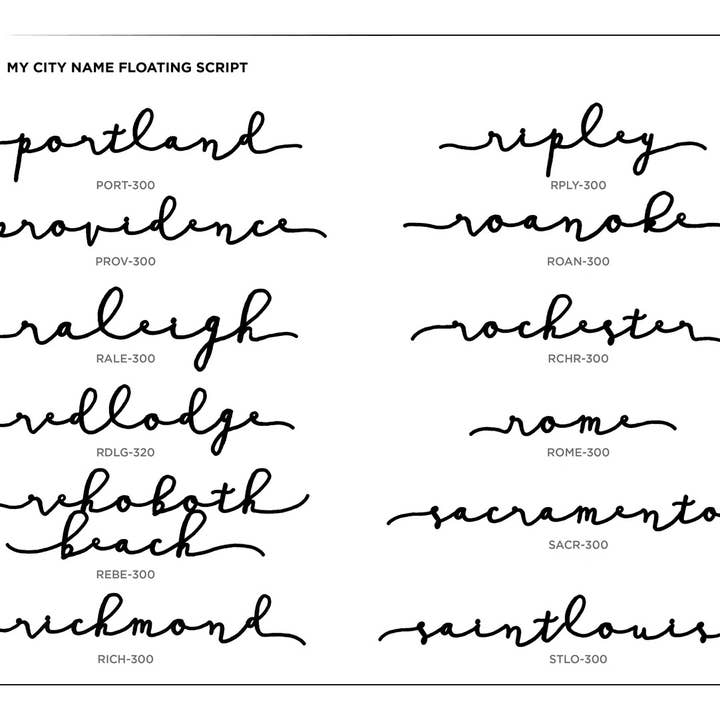 MY CITY NAME FLOATING SCRIPT
portland
PORT-300
providence
PROV-300
raleigh
RALE-300
redlodge
RDLG-320
rehoboth
beach
REBE-300
richmond
RICH-300
ripley
RPLY-300
roanoke
ROAN-300
rochester
RCHR-300
rome
ROME-300
sacramento
SACR-300
saintlouis
STLO-300